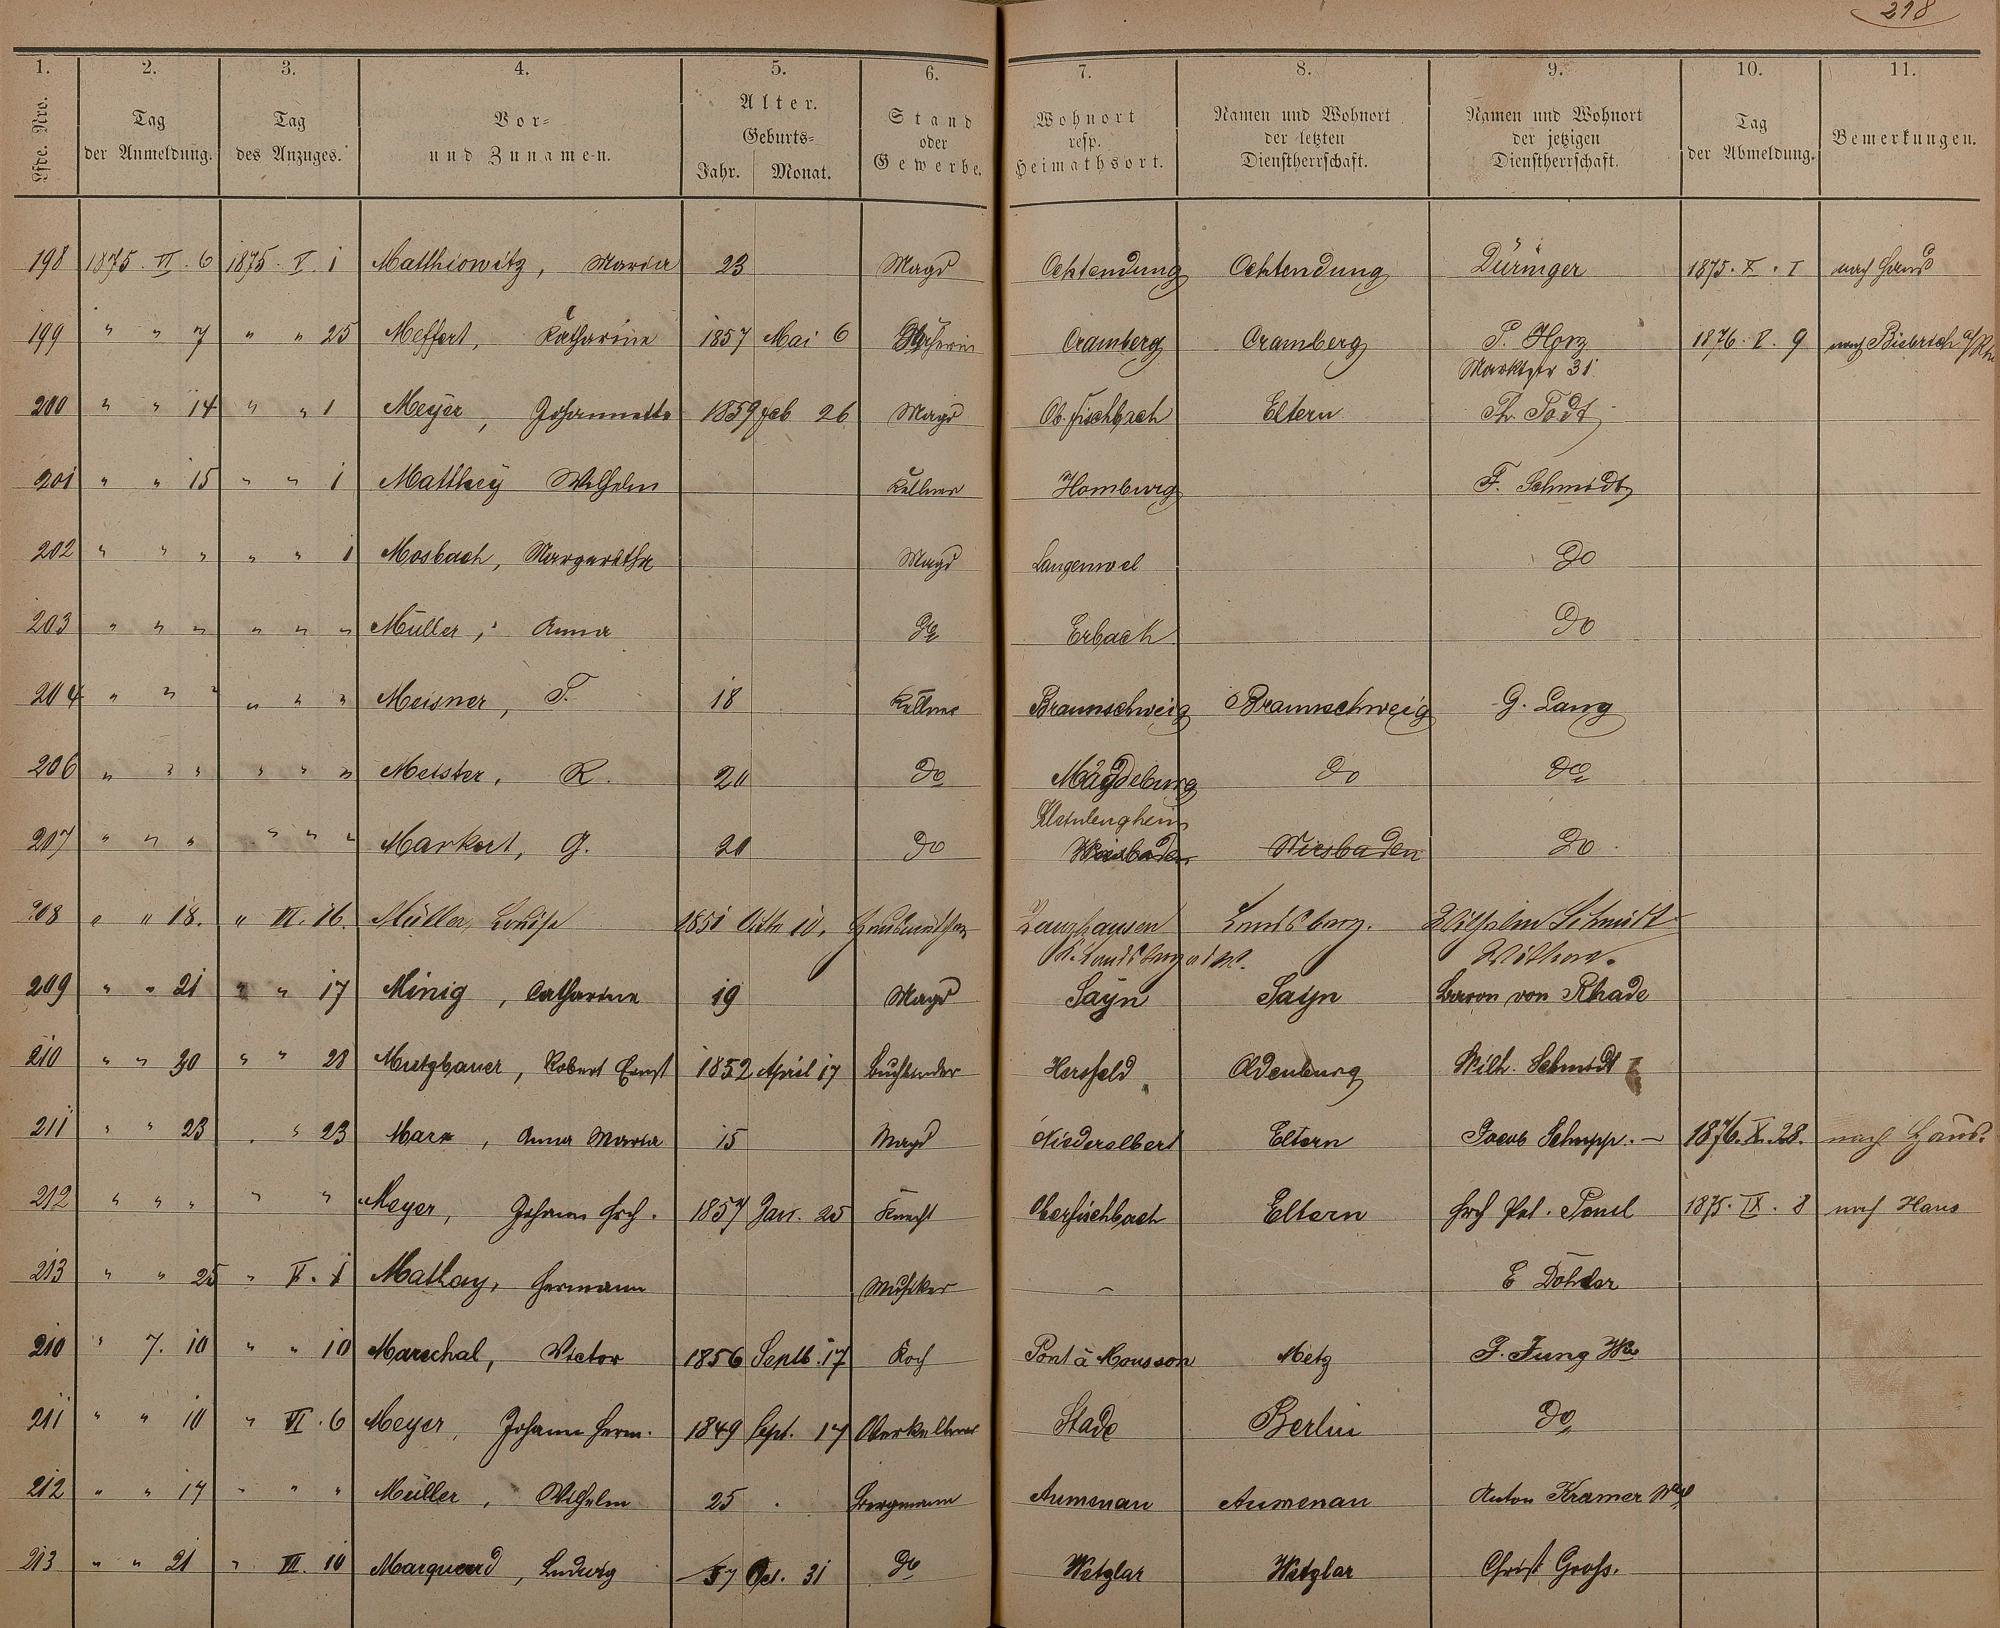 218
1. 2. 3. 4. 5. 6. 7. 8. 9. 10. 11.
Lfde. Nro. Tag der Anmeldung. Tag des Anzuges. Vor- und Zunamen. Alter. Geburts- Jahr. Monat. Stand oder Gewerbe. Wohnort resp. Heimathsort. Namen und Wohnort der letzten Dienstherrschaft. Namen und Wohnort der jetzigen Dienstherrschaft. Tag der Abmeldung. Bemerkungen.
198 1875. VI. 6 1875. V. 1 Matthiowitz, Maria 23 Magd Ochtendung Ochtendung Düringer 1875. X. I nach Haus
199 " " 7 " " 25 Meffert, Katharine 1857 Mai 6 Cramberg Cramberg P. Horz 1876. V. 9 nach Biebrich a/Rh
Marktstr 31
200 " " 14 " " 1 Meyer, Johannette 1859 Feb 26 Magd Ob. Fischbach Eltern Ph. Todt
201 " " 15 " " 1 Matthey Wilhelm Kellner Homburg F. Schmidt
202 " " " " " 1 Mosbach, Margaretha Magd do
203 " " " " " " Müller, Anna do Erbach do
204 " " " " " " Meisner, T. 18 Kellner Braunschweig Braunschweig G. Lang
206 " " " " " " Meister, R. 20 do Magdeburg do do
207 " " " " " " Markert, G. 20 do Wiesbaden Wiesbaden do
208 " " 18. " VI. 16. Müller, Louise 1851 10. Landsberg. Wilhelm Schmidt
Wittwe.
209 " " 21 " " 17 Minig, Catharina 19 Magd Sayn Sayn Baron von Rhade
210 " " 30 " " 28 Mutzbauer, Robert Ernst 1852 April 17 Buchbinder Hersfeld Oldenburg Wilh. Schmidt
211 " " 23 " " 23 Marx, Anna Maria 15 Magd Niederelbert Eltern Jacob Schupp. 1876. X. 28. nach Haus.
212 " " " " " Meyer, Johann Frch. 1857 Jan. 25 Knecht Oberfischbach Eltern 1875. IX. 8 nach Haus
213 " " 25 " V. 1 Mathay, Hermann Musiker –
210 " 7. 10 " " 10 Marechal, Victor 1856 Septb. 17 Koch Pont à Mousson Metz J. Jung We
211 " " 10 " VI. 6 Meyer, Johann Herm. 1849 Sept. 17 Oberkellner Stade Berlin do
212 " " 17 " " " Müller, Wilhelm 25 Bergmann Aumenau Aumenau Anton Kramer
213 " " 21 " VII. 10 Marquard, Ludwig 57 Oct. 31 do Wetzlar Wetzlar Christ Groß.